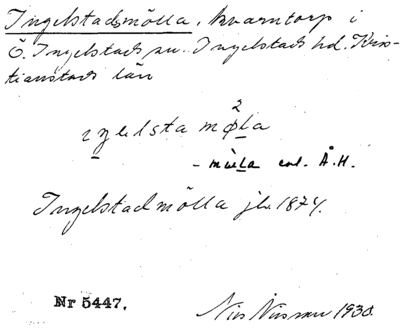 Ingelstadsmölla, kvarntorp i
Ö. Ingelstads sn. Ingelstads hd. Kris-
tianstads län
2
ıŋelsta møla
- mùla enl. Å.H.
Ingelstadmölla jb. 1874.
Nr 5447.
Nils Nilsson 1930.